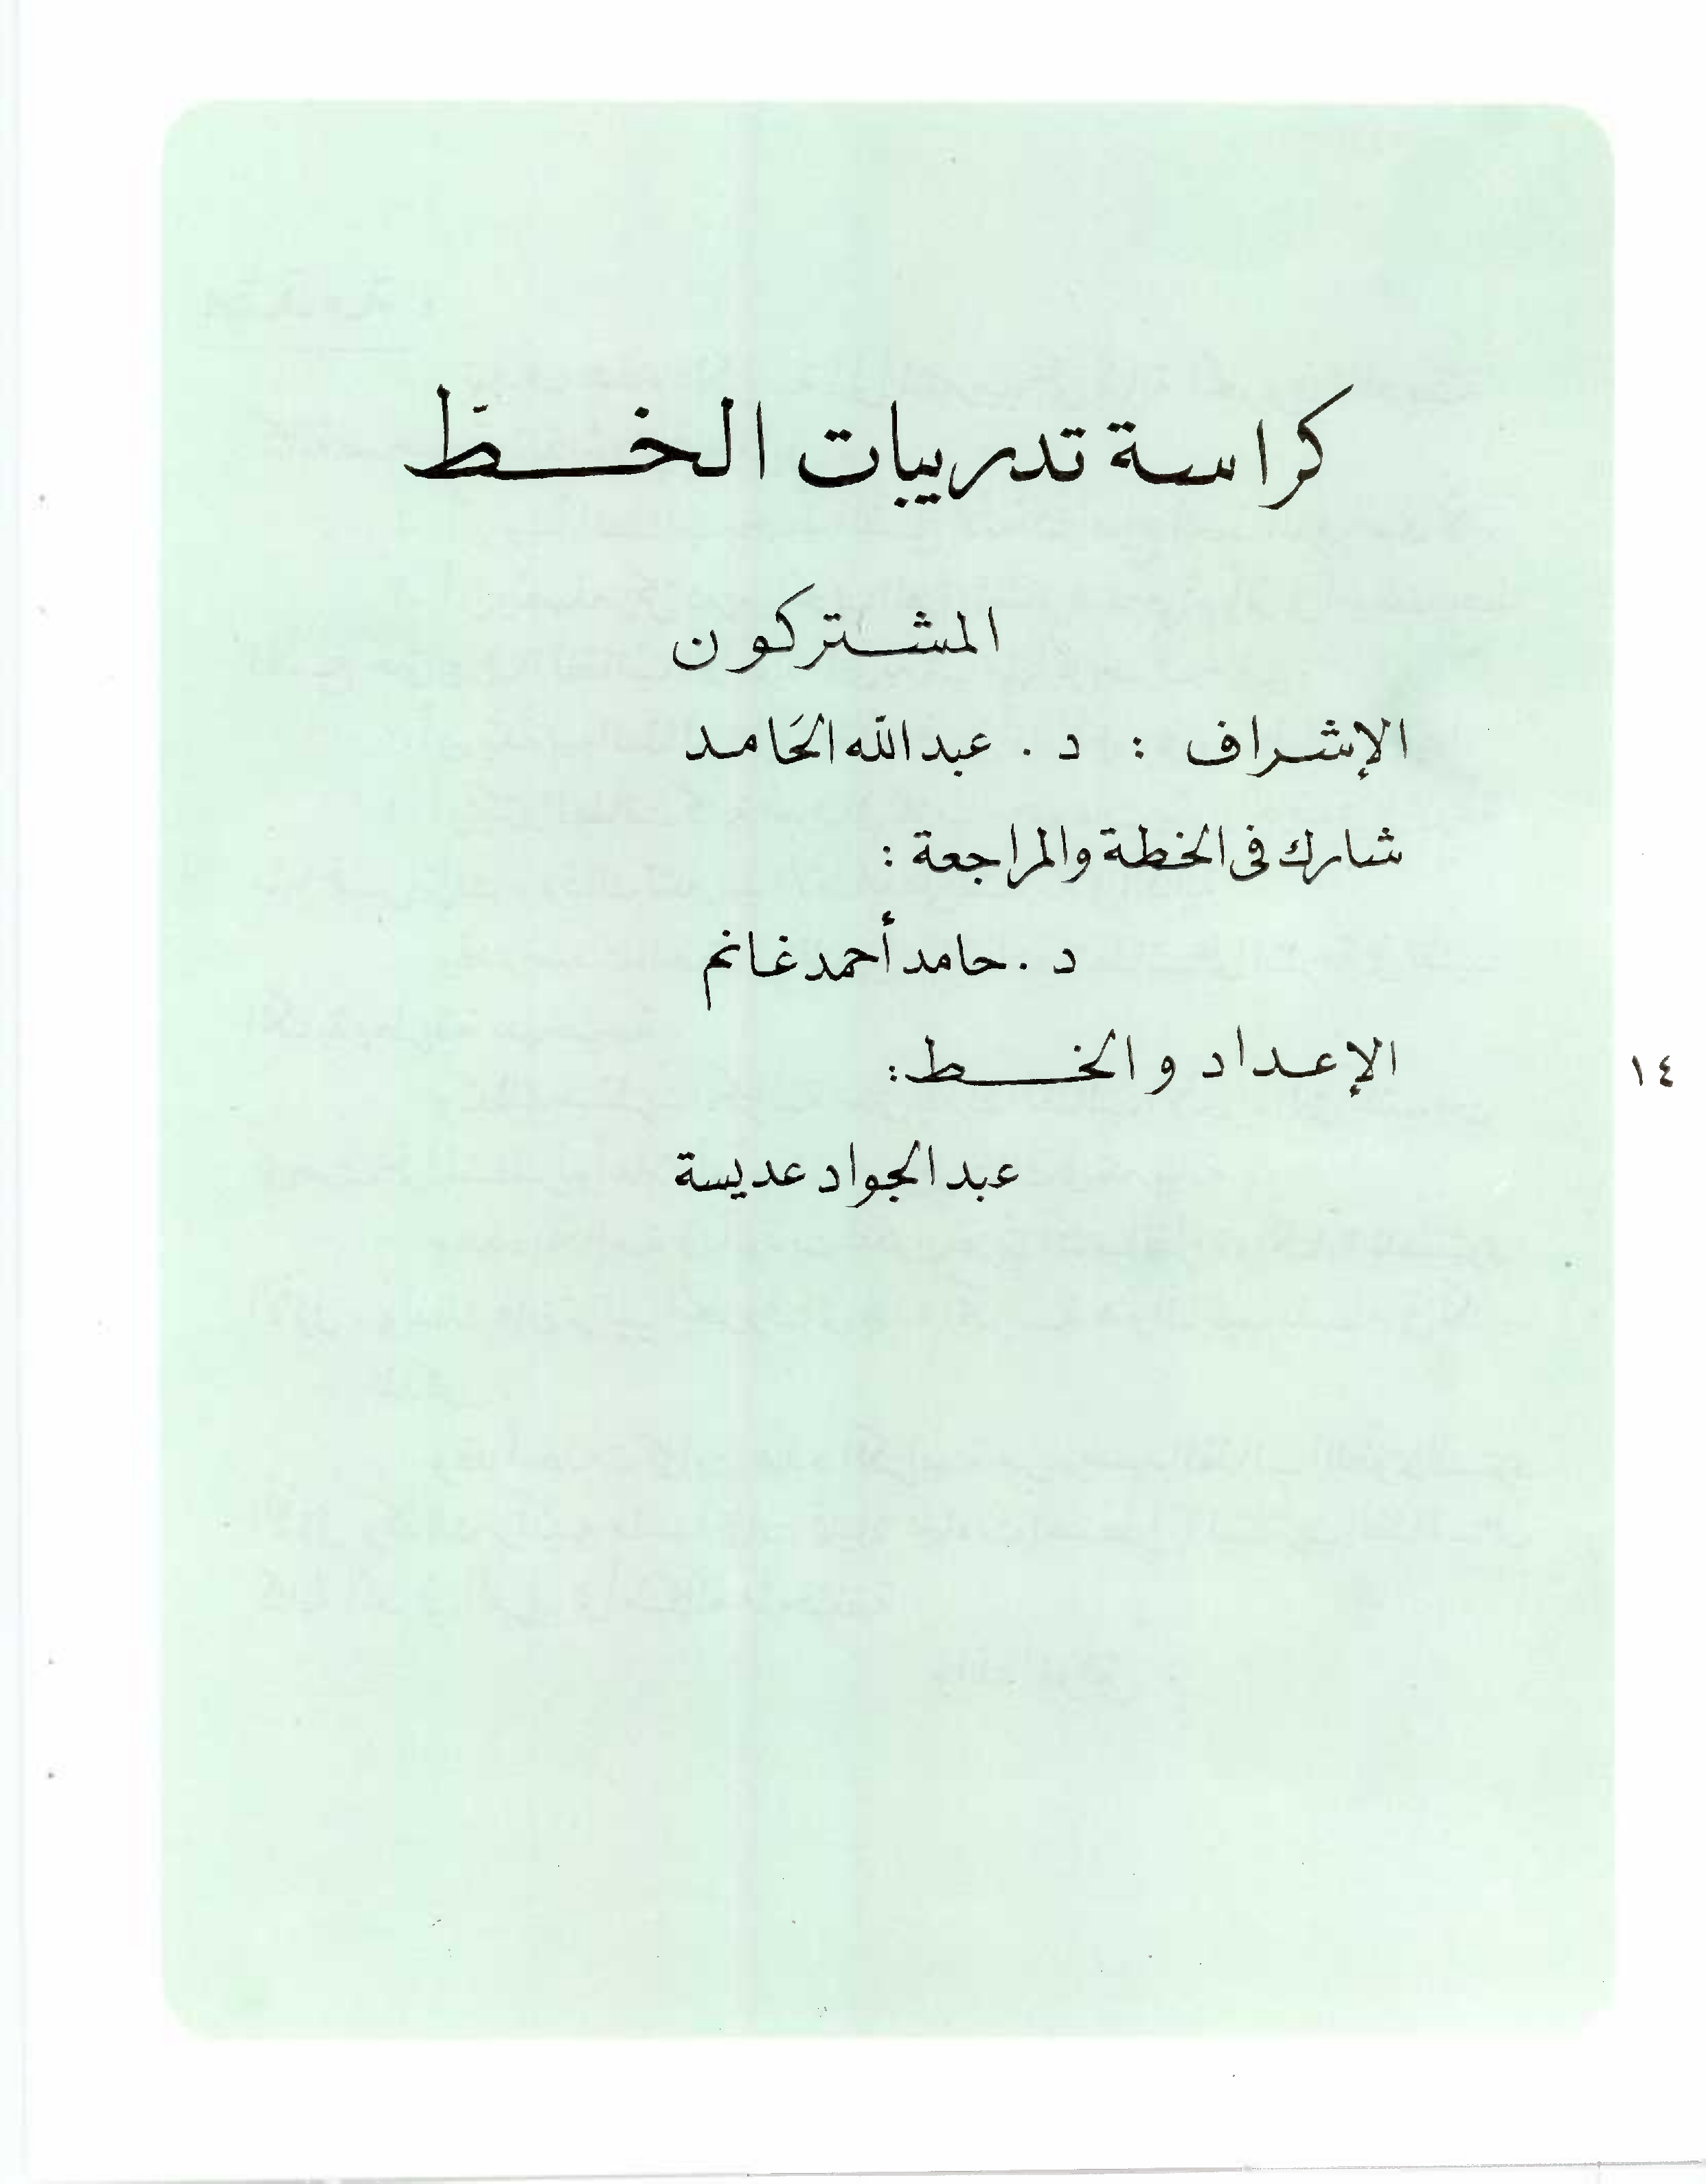 كراسة تدريبات الخط
المشتركون
الإشراف : د . عبد الله الحامد
شارك في الخطة والمراجعة :
د . حامد أحمد غانم
الإعداد والخط :
عبد الجواد عديسة
١٤